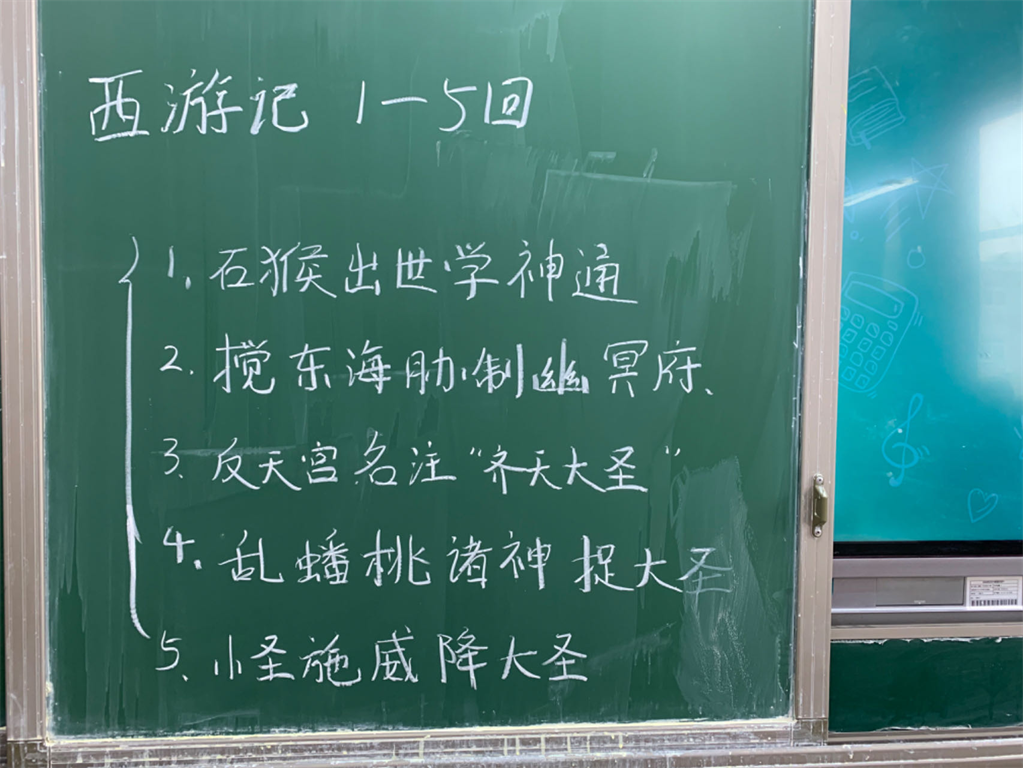 西游记 1-5回
1. 石猴出世学神通
2. 搅东海胁制幽冥府、
3. 反天宫名注“齐天大圣”
4. 乱蟠桃诸神捉大圣
5. 小圣施威降大圣